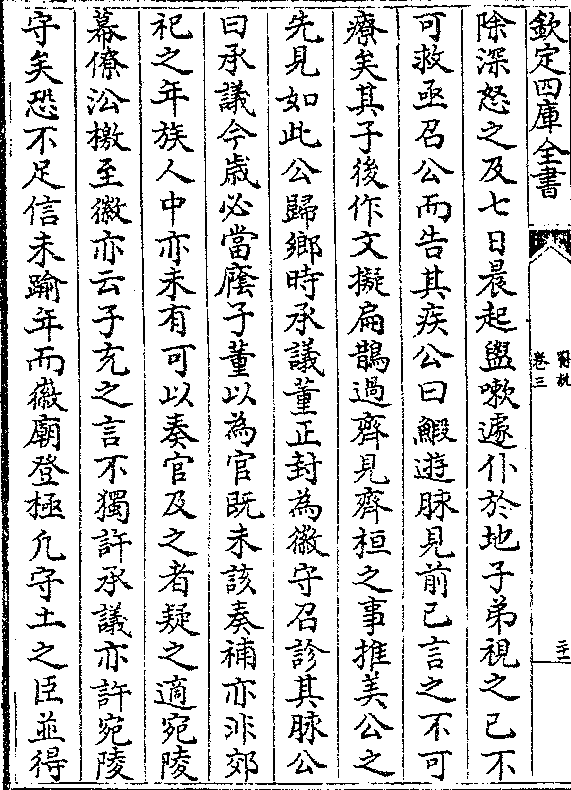 欽定四庫全書
醫說
卷三
二十一
除深怒之及七日晨起盥嗽遽仆於地子弟視之已不
可救亟召公而告其疾公曰鰕遊脉見前已言之不可
療矣其子後作文擬扁鵲過齊見齊桓之事推美公之
先見如此公歸鄉時承議董正封為徽守召診其脉公
曰承議今歳必當䕃子董以為官既未該奏補亦非郊
祀之年族人中亦未有可以奏官及之者疑之適宛陵
幕僚㳂檄至徽亦云子充之言不獨許承議亦許宛陵
守矣恐不足信未踰年而徽廟登極凡守土之臣並得